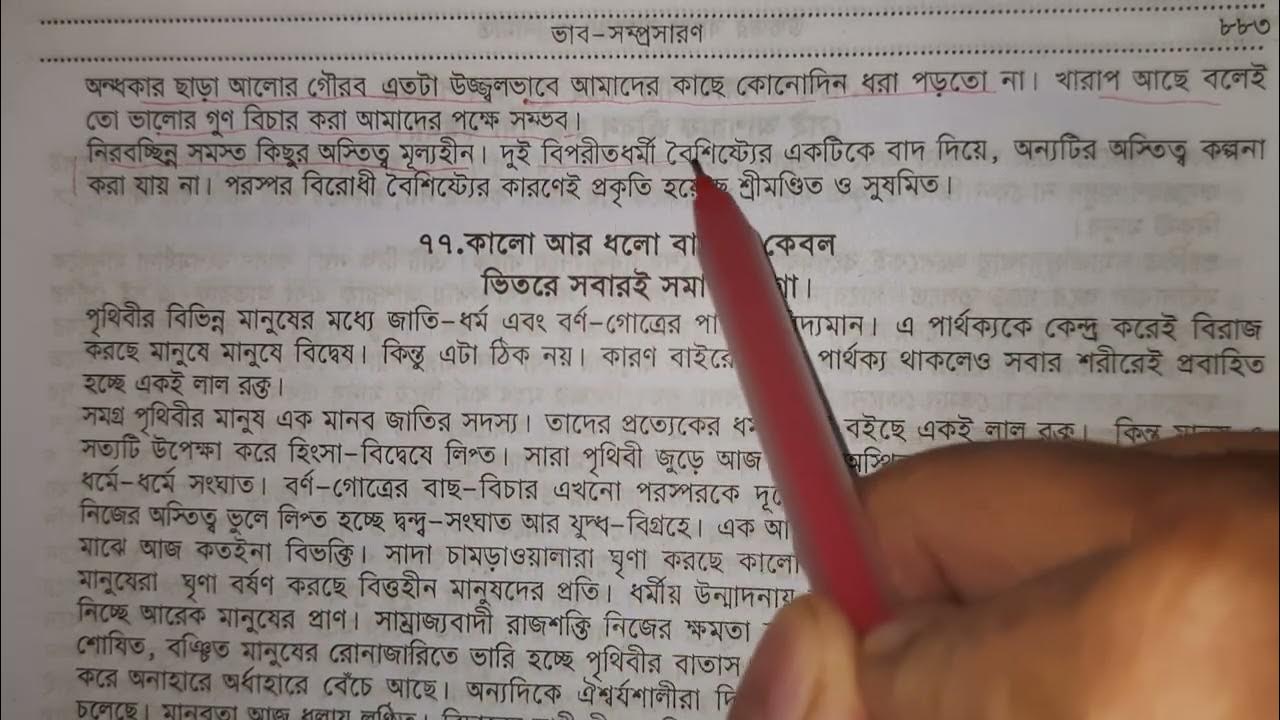 ভাব-সম্প্রসারণ
৮৮৩
অন্ধকার ছাড়া আলোর গৌরব এতটা উজ্জ্বলভাবে আমাদের কাছে কোনোদিন ধরা পড়তো না। খারাপ আছে বলেই
তো ভালোর গুণ বিচার করা আমাদের পক্ষে সম্ভব।
নিরবচ্ছিন্ন সমস্ত কিছুর অস্তিত্ব মূল্যহীন। দুই বিপরীতধর্মী বৈশিষ্ট্যের একটিকে বাদ দিয়ে, অন্যটির অস্তিত্ব কল্পনা
করা যায় না। পরস্পর বিরোধী বৈশিষ্ট্যের কারণেই প্রকৃতি শ্রীমণ্ডিত ও সুষমিত।
৭৭.কালো আর ধলো কেবল
ভিতরে সবারই
পৃথিবীর বিভিন্ন মানুষের মধ্যে জাতি-ধর্ম এবং বর্ণ-গোত্রের এ পার্থক্যকে কেন্দ্র করেই বিরাজ
করছে মানুষে মানুষে বিদ্বেষ। কিন্তু এটা ঠিক নয়। কারণ পার্থক্য থাকলেও সবার শরীরেই প্রবাহিত
হচ্ছে একই লাল রক্ত।
সমগ্র পৃথিবীর মানুষ এক মানব জাতির সদস্য। তাদের প্রত্যেকের বইছে একই লাল রক্ত। কিন্তু
সত্যটি উপেক্ষা করে হিংসা-বিদ্বেষে লিপ্ত। সারা পৃথিবী জুড়ে আজ
ধর্মে-ধর্মে সংঘাত। বর্ণ-গোত্রের বাছ-বিচার এখনো পরস্পরকে
নিজের অস্তিত্ব ভুলে লিপ্ত হচ্ছে দ্বন্দ্ব-সংঘাত আর যুদ্ধ-বিগ্রহে। এক
মাঝে আজ কতইনা বিভক্তি। সাদা চামড়াওয়ালারা ঘৃণা করছে কালো
মানুষেরা ঘৃণা বর্ষণ করছে বিত্তহীন মানুষদের প্রতি। ধর্মীয় উন্মাদনায়
নিচ্ছে আরেক মানুষের প্রাণ। সাম্রাজ্যবাদী রাজশক্তি নিজের ক্ষমতা
শোষিত, বঞ্চিত মানুষের রোনাজারিতে ভারি হচ্ছে পৃথিবীর বাতাস
করে অনাহারে অর্ধাহারে বেঁচে আছে। অন্যদিকে ঐশ্বর্যশালীরা
চলেছে। মানবতা আজ ধূলায় লুণ্ঠিত।